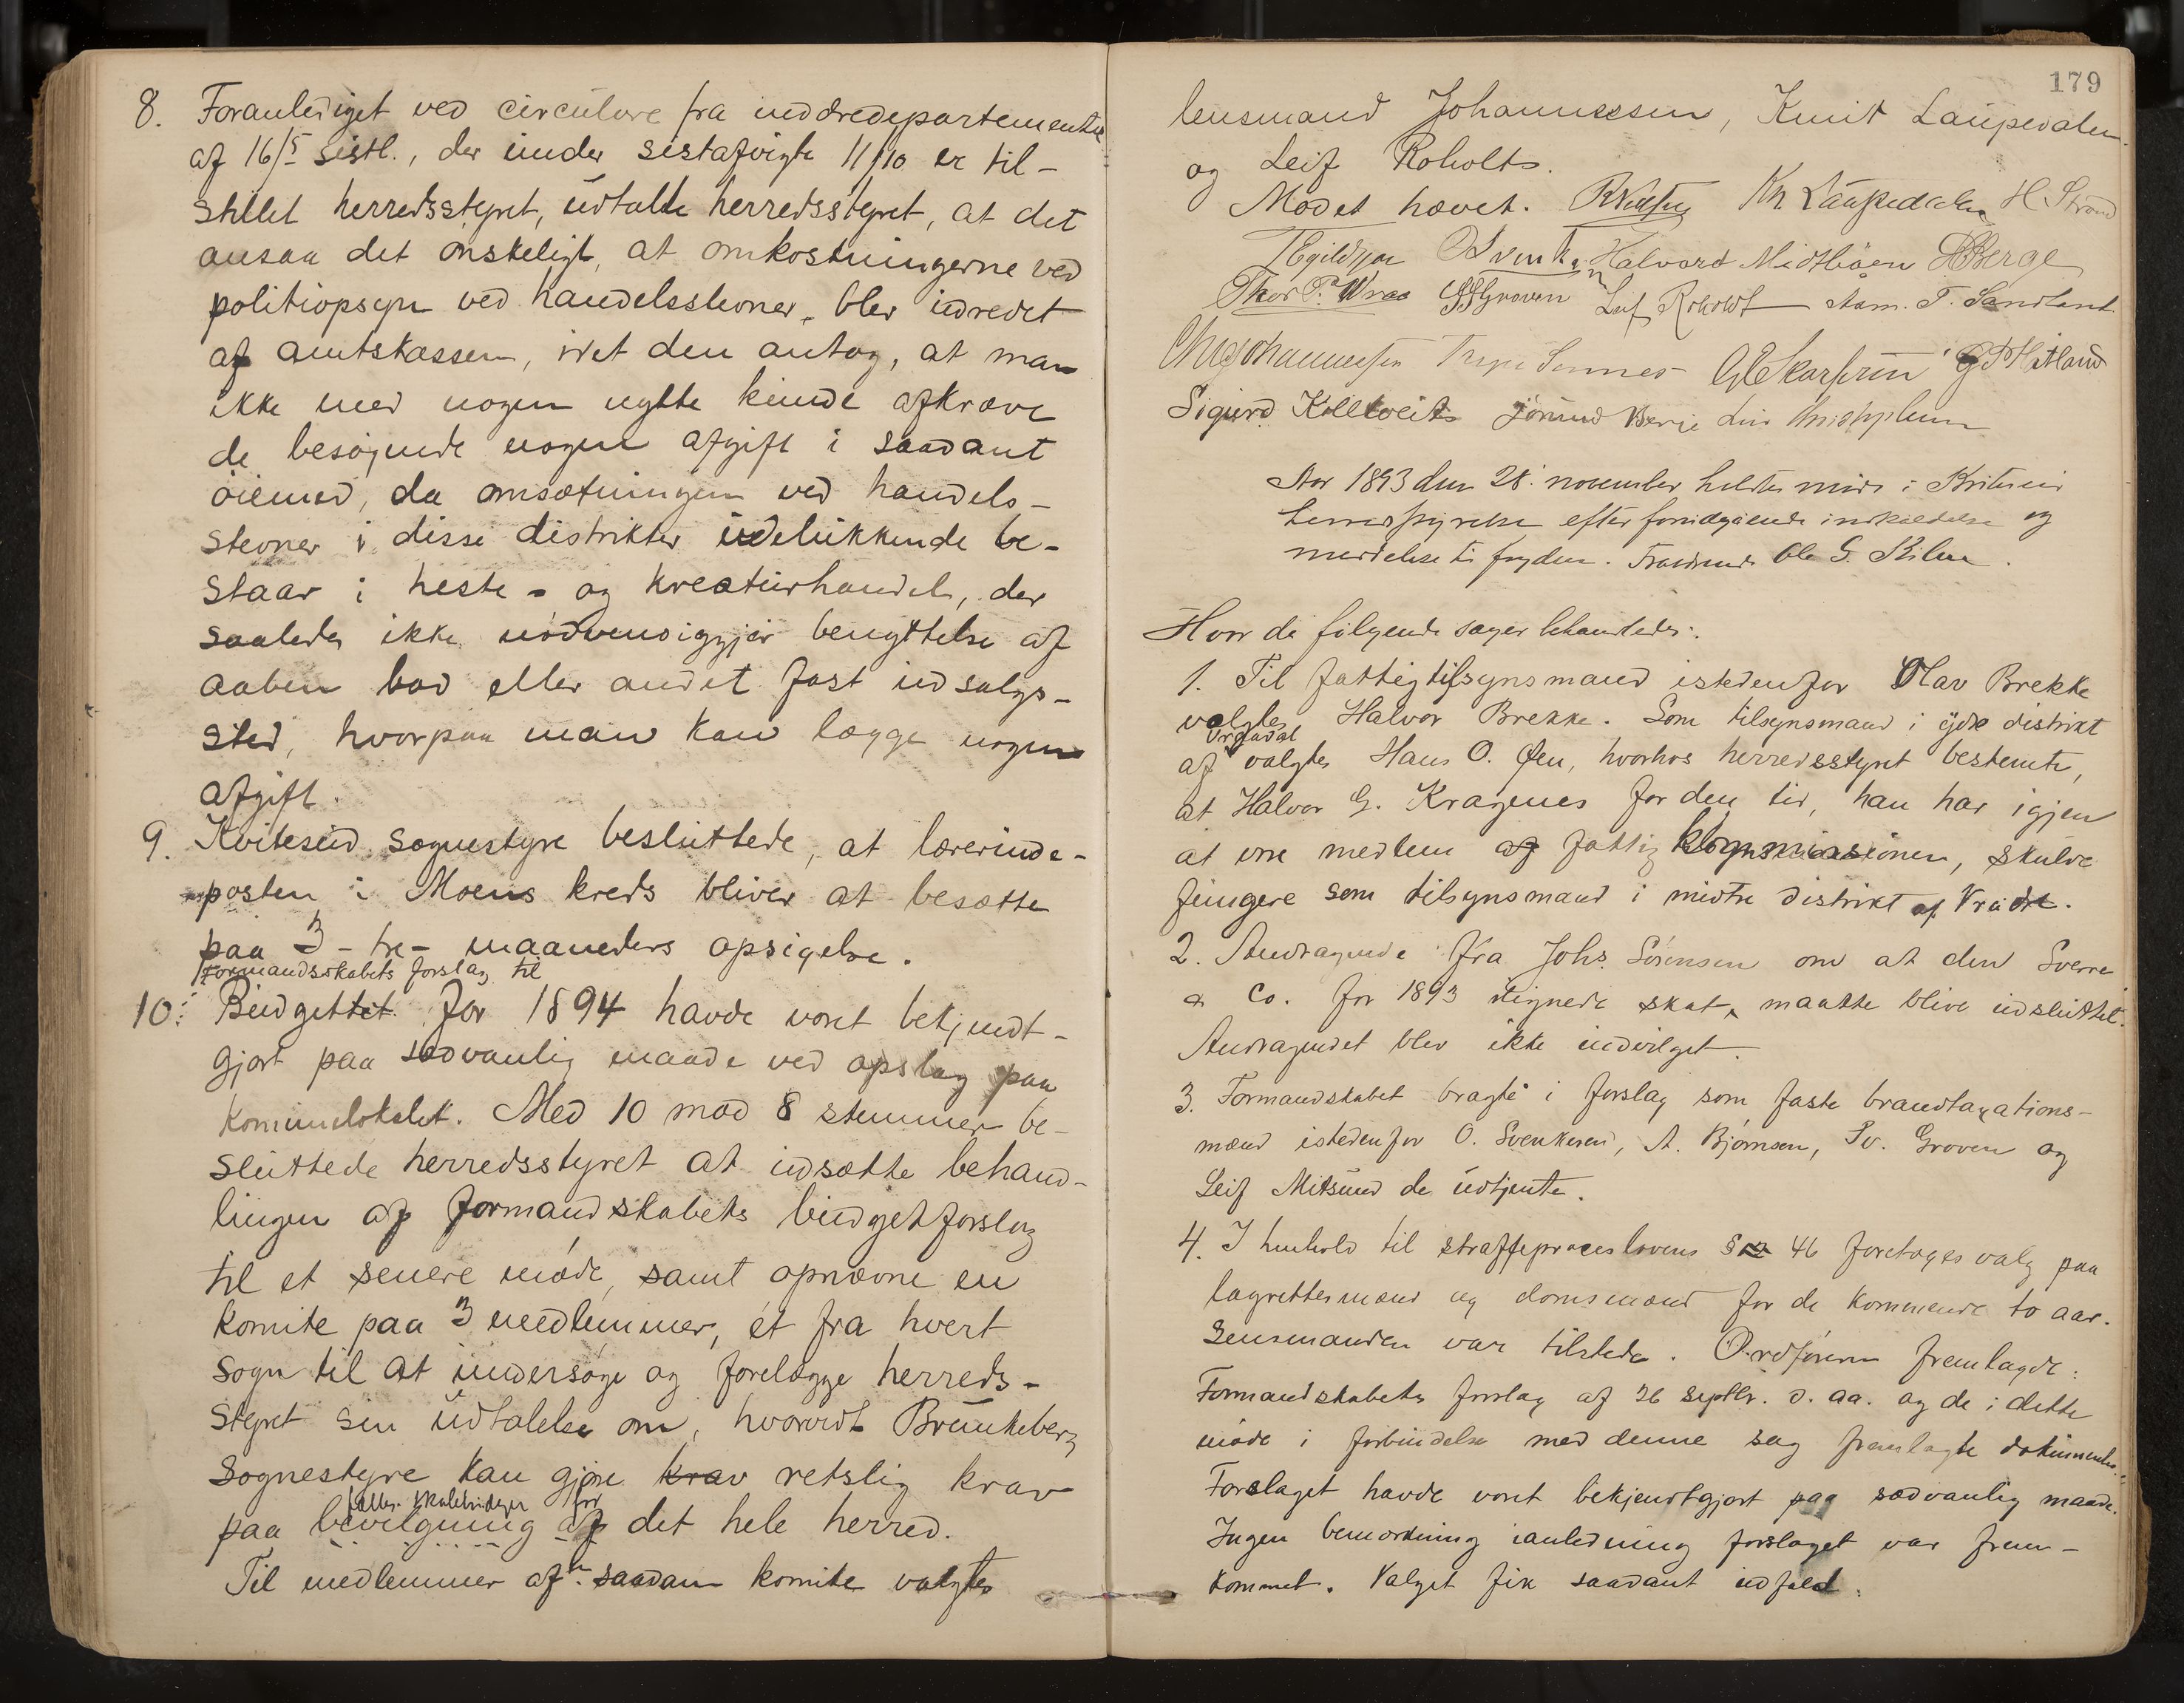 8. Foranlediget ved circulære fra indredepartementet
af 16/5 sistl., der under sistafvigte 11/10 er til-
stillet herredsstyret, udtalte herredsstyret, at det
ansaa det ønskeligt, at omkostningerne ved
politiopsyn ved handelsstevner, blev udredet
af amtskassen, idet den antog, at man
ikke med nogen nytte kunde afkræve
de besøgende nogen afgift i saadant
øiemed, da omsætningen ved handels-
stevner i disse distrikter udelukkende be-
staar i heste- og kreaturhandel, der
saaledes ikke nødvendiggjør benyttelse af
aaben bod eller andet fast udsalgs-
sted, hvorpaa man kan lægge nogen
afgift.
9. Kviteseid sognestyre besluttede, at lærerinde-
posten i Moens kreds bliver at besætte
paa 3 - tre - maaneders opsigelse.
Formandsskabets forslag til
10. Budgettet for 1894 havde været bekjendt-
gjort paa sædvanlig maade ved opslag paa
kommunelokalet. Med 10 mod 8 stemmer be-
sluttede herredsstyret at udsætte behand-
lingen af formandskabets budgetforslag
til et senere møde, samt opnævne en
komite paa 3 medlemmer, ét fra hvert
sogn til at undersøge og forelægge herreds-
styret sin udtalelse om, hvorvidt Brunkeberg
sognestyre kan gjøre krav retslig krav
fælles skolebidrag for
paa bevilgning af det hele herred.
Til medlemmer af saadan komite valgtes
179
lensmand Johannessen, Knut Laupedalen
og Leif Roholt.
Mødet hævet. Kn. Laupedalen H. Strand
Halvord Midtbøen Berge
Thor P. Vraa Groven Leif Roholdt Aam. T. Sandland
Chr Johannessen
Sigurd Kilktveit Jørund Berge
Aar 1893 den 28. november holdtes møde i Kviteseid
herredsstyrelse efter foregaaende indkaldelse og
Fraværende Ole G. Kilen.
Hvor de følgende sager behandledes:
1. Til fattigtilsynsmand istedenfor Olav Brekke
valgtes Halvor Brekke. Som tilsynsmand i ydre distrikt
Vraadal
af valgtes Hans O. Øen, hvorhos herredsstyret bestemte,
at Halvor G. Kragenes for den tid, han har igjen
at være medlem af fattigkommissionen, skulde
fungere som tilsynsmand i midtre distrikt af Vraadal.
2. Andragende fra Johs. Sørensen om at den Sverre
& Co. for 1893 lignede skat, maatte blive udsluttet.
Andragendet blev ikke indvilget.
3. Formandskabet bragte i forslag som faste brandtaxations-
mænd istedenfor O. Svenkesen, A. Bjørnsen, Sv. Groven og
Leif Mitsund de udtjente.
4. I henhold til straffeproceslovens § 46 foretoges valg paa
lagrettesmænd og domsmænd for de kommende to aar.
Lensmanden var tilstede. Ordføreren fremlagde:
Formandskabets forslag af 26 septbr. d. aa. og de i dette
møde i forbindelse med denne sag fremlagte dokumenter.
Forslaget havde været bekjendtgjort paa sædvanlig maade.
Ingen bemærkning i anledning forslaget var frem-
kommet. Valget fik saadant udfald: